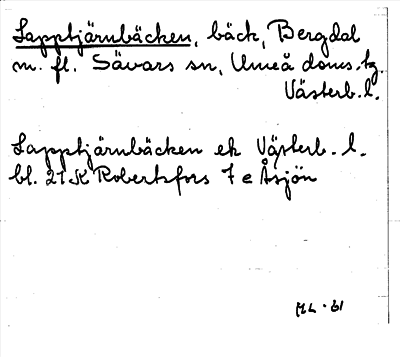 Lapptjärnbäcken, bäck, Bergdal
m. fl. Sävars sn, Umeå doms.tg
Västerb. l.
Lapptjärnbäcken ek Västerb. l.
bl. 21 K Robertsfors 7 e Åsjön
ML - 61